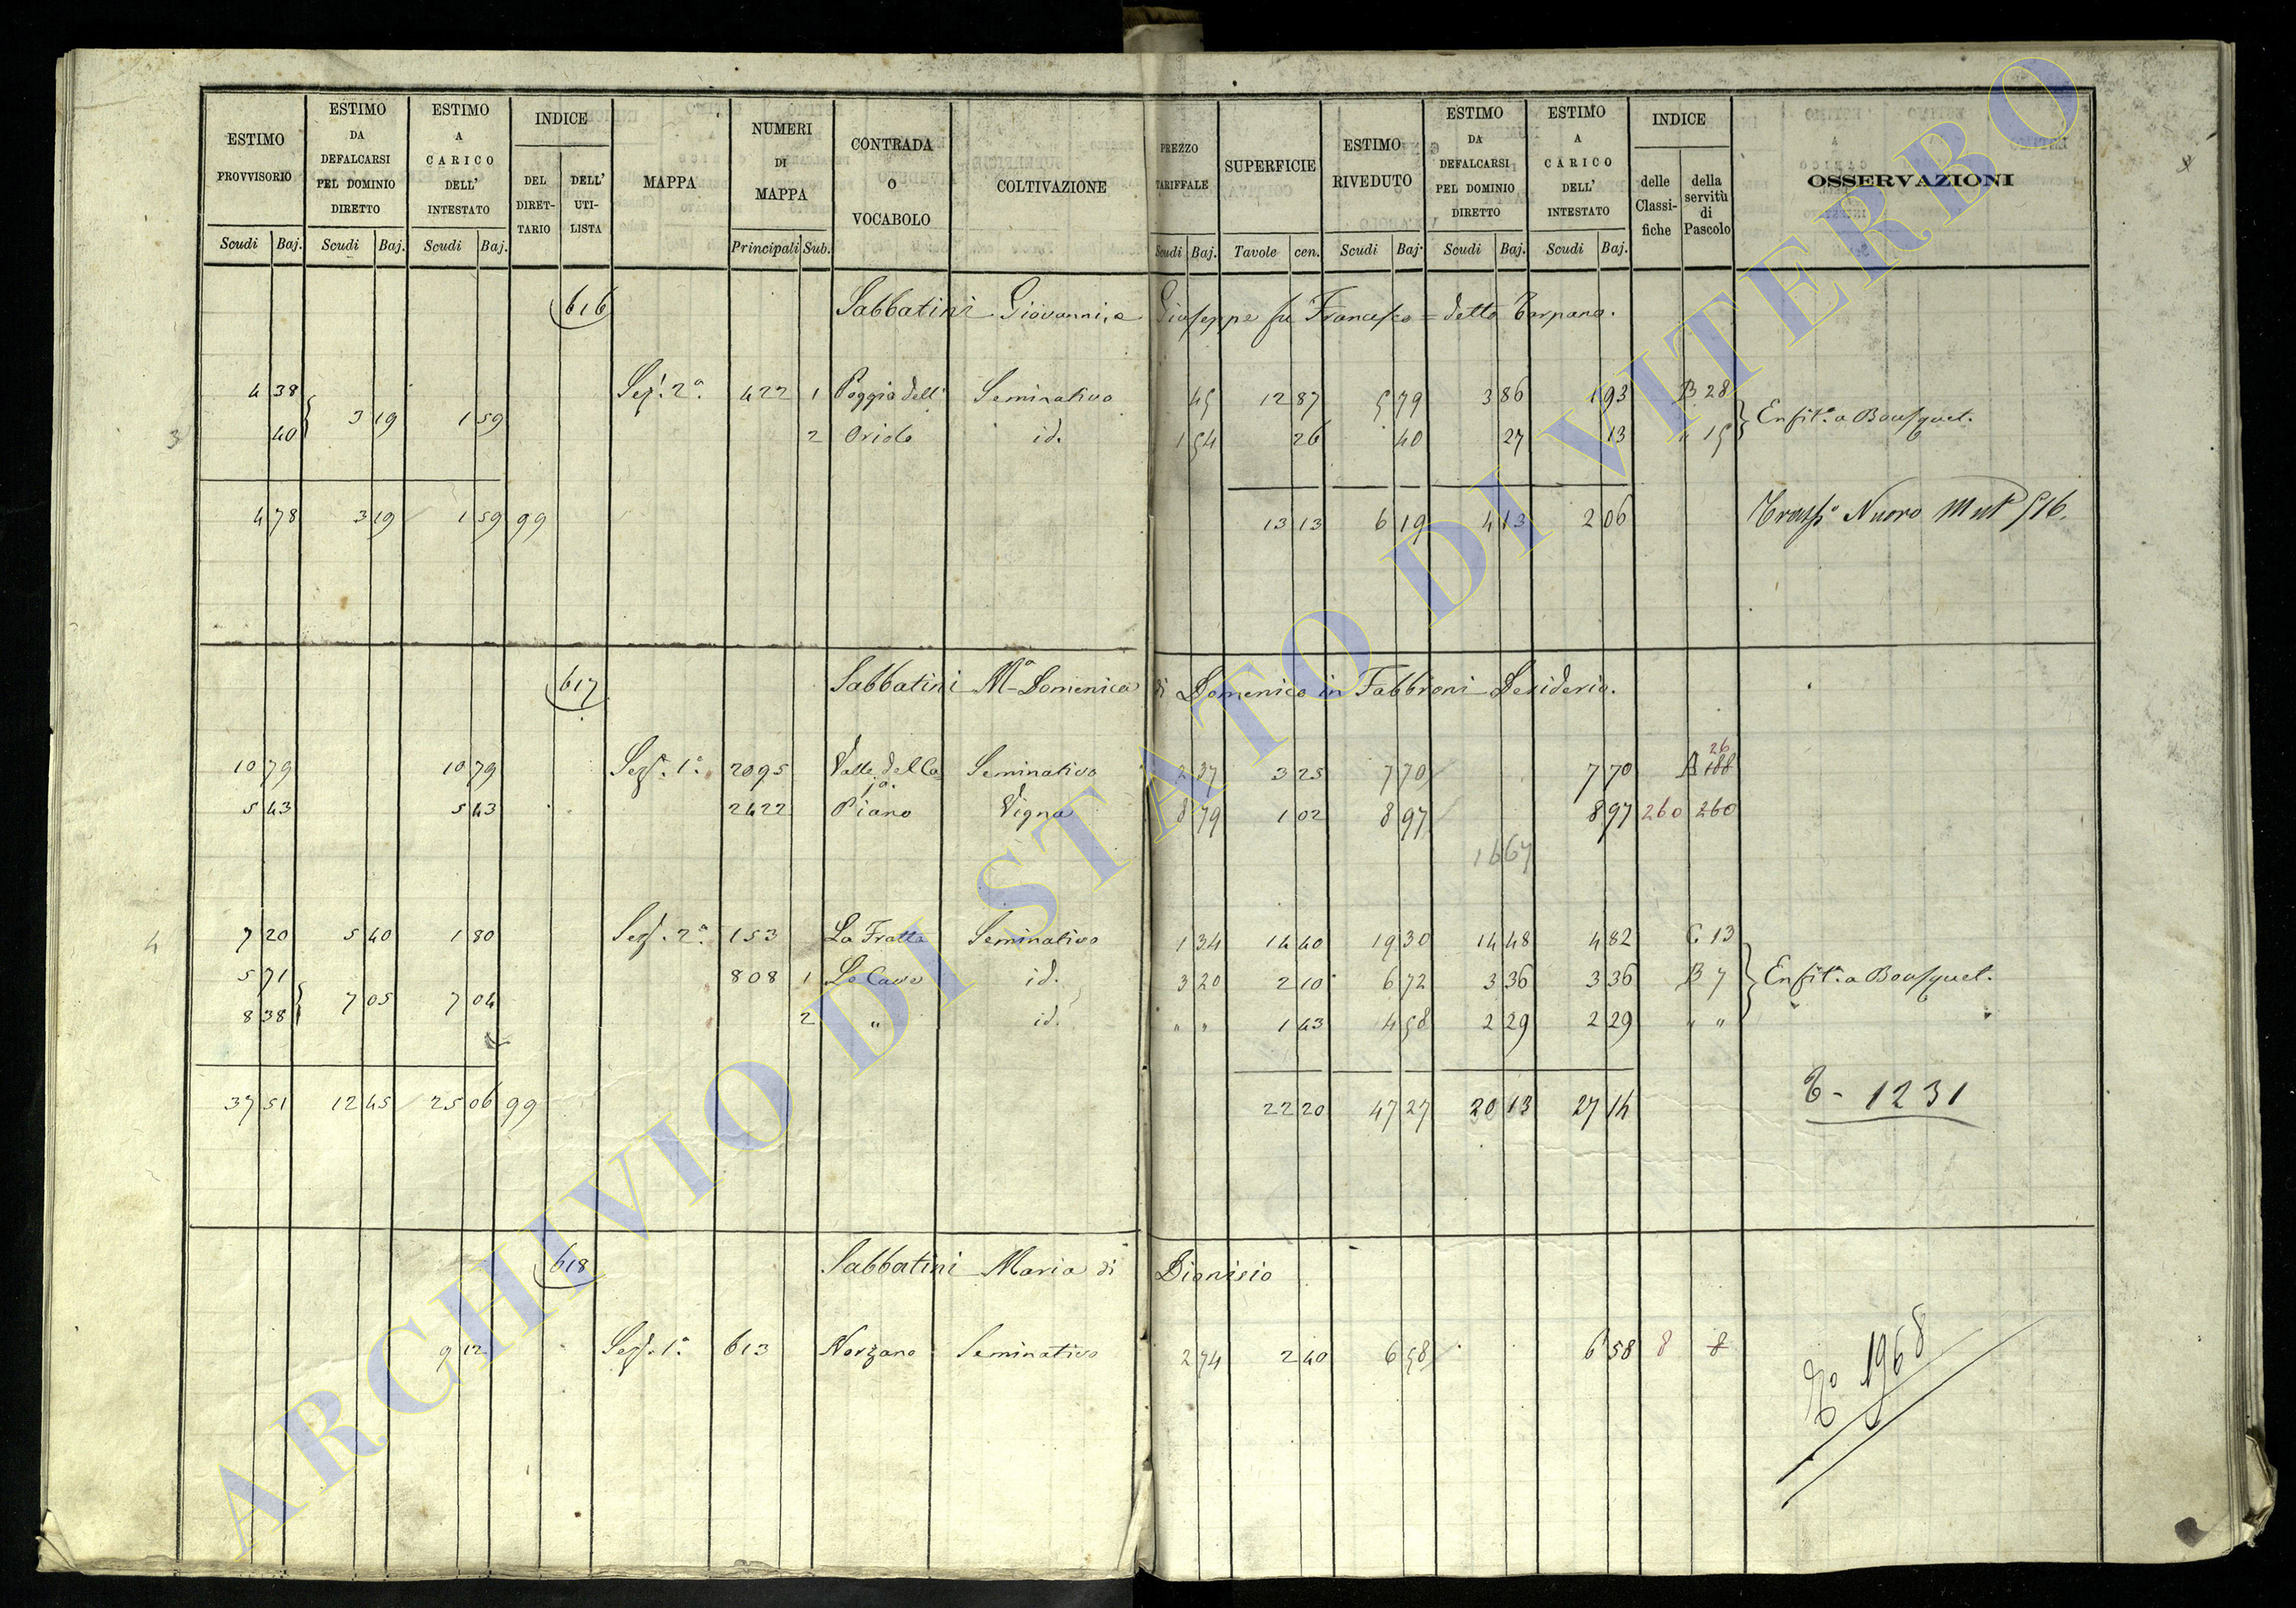 ESTIMO PROVVISORIO Scudi Baj. ESTIMO DA DEFALCARSI PEL DOMINIO DIRETTO Scudi Baj. ESTIMO A CARICO DELL' INTESTATO Scudi Baj. INDICE DEL DIRET-TARIO DELL' UTI-LISTA MAPPA NUMERI DI MAPPA Principali Sub. CONTRADA O VOCABOLO COLTIVAZIONE PREZZO TARIFFALE Scudi Baj. SUPERFICIE Tavole cen. ESTIMO RIVEDUTO Scudi Baj. ESTIMO DA DEFALCARSI PEL DOMINIO DIRETTO Scudi Baj. ESTIMO A CARICO DELL' INTESTATO Scudi Baj. INDICE delle Classi-fiche della servitù di Pascolo OSSERVAZIONI
616 Sabbatini Giovanni, e Giuseppe fu Francesco = detto
4 38 Sez. 2a 422 1 Poggio dell' Seminativo 45 12 87 5 79 3 86 1 93 B 28
3 19 1 59 Enfit. a Bousquet.
3 40 2 Oriolo id. 1 54 26 40 27 13 " 15
4 78 3 19 1 59 99 13 13 6 19 4 13 2 06 Nuovo Mut 516.
617 Sabbatini Ma Domenica di Domenico in Fabbroni Desiderio.
26
10 79 10 79 Sez. 1a 2095 Valle della Seminativo 2 37 3 25 7 70 7 70 A 188
5 43 5 43 2422 Piano Vigna 8 79 1 02 8 97 8 97 260 260
1667
4 7 20 5 40 1 80 Sez. 2a 153 La Fratta Seminativo 1 34 14 40 19 30 14 48 4 82 C 13
5 71 808 1 Le Cave id. 3 20 2 10 6 72 3 36 3 36 B 7 Enfit. a Bousquet.
7 05 7 04
8 38 2 " id. " " 1 43 4 58 2 29 2 29 " "
37 51 12 45 25 06 99 22 20 47 27 20 13 27 14 T - 1231
618 Sabbatini Maria di Dionisio
9 12 Sez. 1a 613 Norzano Seminativo 2 74 2 40 6 58 6 58 8 8 1968
ARCHIVIO DI STATO DI VITERBO